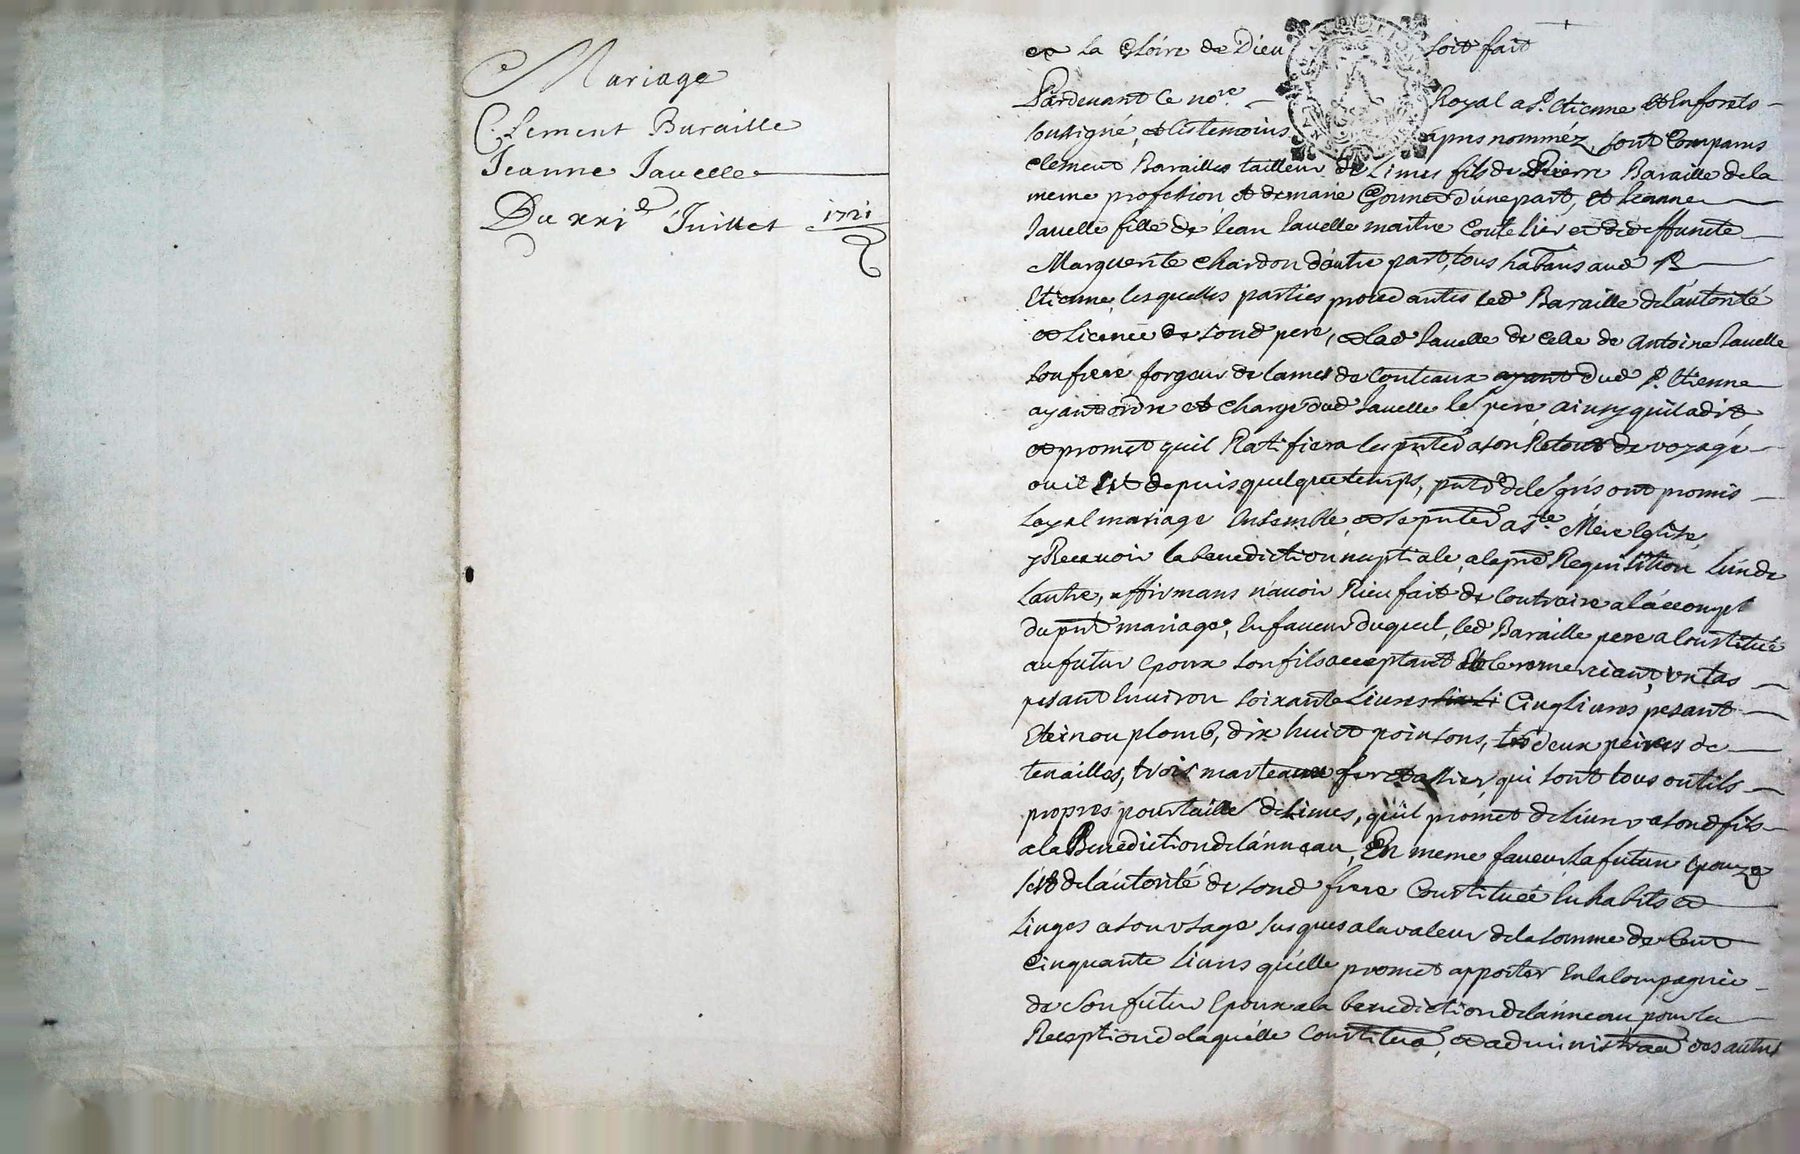 Mariage
Clement Baraille
Jeanne Javelle
Du xxie Juillet 1721
a la Gloire de Dieu soit fait
Pardevant le nore Royal a St. Etienne et en forests
soussigné, et les temoins apres nomméz, sont Comparus
Clement Baraille tailleur de Limes fils de Pierre Baraille de la
meme profession et de marie Gonnet d'une part, et Jeanne
Javelle fille de Jean Javelle maitre Coutelier et de deffuncte
Marguerite Chardon d'autre part, tous habitans aud St
Etienne, lesquelles parties procedantes led Baraille de l'autorité
et licence de sond pere, et lad Javelle de celle de Antoine Javelle
son frere forgeur de lames de Couteaux dud St. Etienne
ayant ordre et charge dud Javelle le pere ainsy quil a dit
et promet quil Ratifiera les pntes a son Retour de voyage
ou il est depuis quelque temps, de gré ont promis
Loyal mariage Ensemble, et se pnter a ste Mere Eglise,
y Recevoir la benediction nuptiale, a la pre Requisition Lun de
Lautre, affirmans n'avoir Rien fait de Contraire a l'accompt
du pnt mariage, En faveur duquel, led Baraille pere a Constitué
au futur Epoux son fils acceptant et le remerciant, un tas
pesant Environ soixante Livres Cinq Livres pesant
Etein ou plomb, dix huict poinsons, deux peires de
tenailles, trois marteaux fer et assier, qui sont tous outils
propres pour tailler de Limes, qu'il promet delivrer a sond fils
a la Benediction de l'anneau, En meme faveur la future Epouze
s'est de l'autorité de sond frere Constituée En habits et
Linges a son usage jusques a la valeur de la somme de Cent
Cinquante Livres qu'elle promet apporter En la Compagnie
de son futur Epoux a la benediction de l'anneau pour la
Reception de laquelle Constituon, et administraon des autres